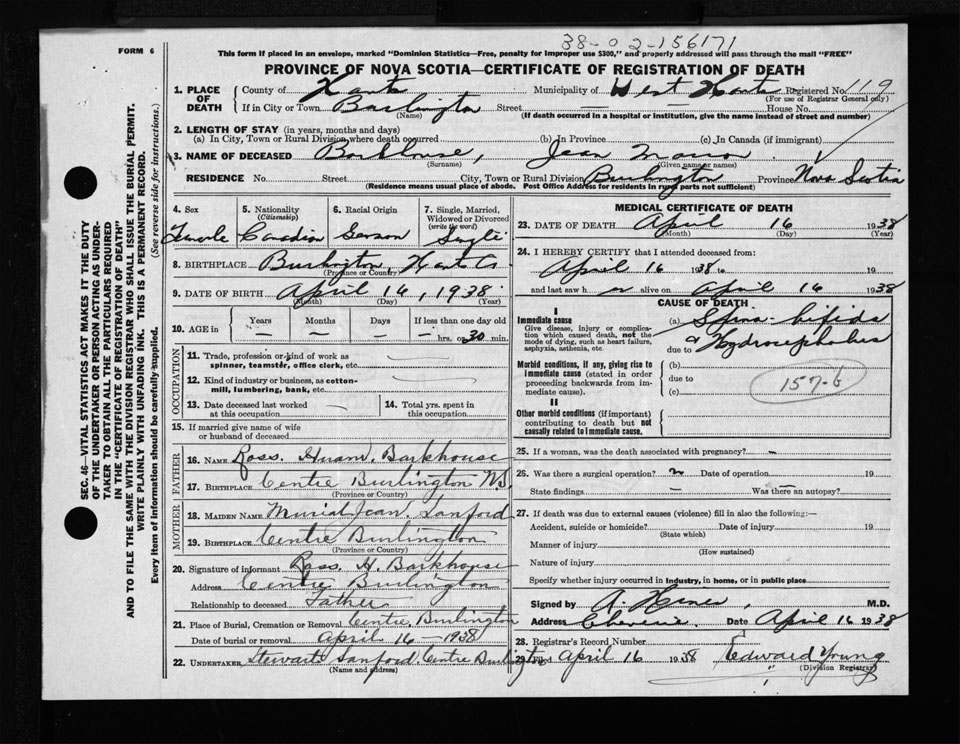 38-02-156171
FORM 6
This form if placed in an envelope, marked "Dominion Statistics—Free, penalty for improper use $300," and properly addressed will pass through the mail "FREE"
PROVINCE OF NOVA SCOTIA—CERTIFICATE OF REGISTRATION OF DEATH
1. PLACE OF DEATH
County of Hants Municipality of West Hants Registered No. 119
(For use of Registrar General only)
If in City or Town Burlington Street — House No.
(Name) (If death occurred in a hospital or institution, give the name instead of street and number)
2. LENGTH OF STAY (in years, months and days)
(a) In City, Town or Rural Division where death occurred (b) In Province (c) In Canada (if immigrant)
3. NAME OF DECEASED Barkhouse, Jean
(Surname) (Given name or names)
RESIDENCE No. Street City, Town or Rural Division Burlington Province Nova Scotia
(Residence means usual place of abode. Post Office Address for residents in rural parts not sufficient)
4. Sex Female
5. Nationality (Citizenship) Canadian
6. Racial Origin German
7. Single, Married, Widowed or Divorced (write the word) Single
8. BIRTHPLACE Burlington, Hants Co
(Province or Country)
9. DATE OF BIRTH April 16, 1938
(Month) (Day) (Year)
10. AGE in Years — Months — Days — If less than one day old — hrs. or 30 min.
OCCUPATION
11. Trade, profession or kind of work as spinner, teamster, office clerk, etc.
12. Kind of industry or business, as cotton-mill, lumbering, bank, etc.
13. Date deceased last worked at this occupation
14. Total yrs. spent in this occupation
15. If married give name of wife or husband of deceased
FATHER
16. NAME Ross. Hiram. Barkhouse
17. BIRTHPLACE Centre Burlington N.S.
(Province or Country)
MOTHER
18. MAIDEN NAME Murial Jean. Sanford
19. BIRTHPLACE Centre Burlington
(Province or Country)
20. Signature of informant Ross. H. Barkhouse
Address Centre Burlington
Relationship to deceased Father
21. Place of Burial, Cremation or Removal Centre, Burlington
Date of burial or removal April 16 – 1938
22. UNDERTAKER Stewart Sanford, Centre Burlington
(Name and address)
MEDICAL CERTIFICATE OF DEATH
23. DATE OF DEATH April 16 1938
(Month) (Day) (Year)
24. I HEREBY CERTIFY that I attended deceased from:
April 16 1938 to 19
and last saw h er alive on April 16 1938
CAUSE OF DEATH
I
Immediate cause
Give disease, injury or complication which caused death, not the mode of dying, such as heart failure, asphyxia, asthenia, etc.
(a) Spina-bifida
due to Hydrocephalus
Morbid conditions, if any, giving rise to immediate cause (stated in order proceeding backwards from immediate cause).
(b)
due to
(c)
157-b
II
Other morbid conditions (if important) contributing to death but not causally related to immediate cause.
25. If a woman, was the death associated with pregnancy? –
26. Was there a surgical operation? Date of operation 19
State findings — Was there an autopsy?
27. If death was due to external causes (violence) fill in also the following:—
Accident, suicide or homicide? Date of injury 19
(State which)
Manner of injury
(How sustained)
Nature of injury
Specify whether injury occurred in industry, in home, or in public place
Signed by A. M.D.
Address Cheverie. Date April 16 1938
28. Registrar's Record Number
29. Filed April 16 1938 Edward Young
(Division Registrar)
SEC. 46—VITAL STATISTICS ACT MAKES IT THE DUTY
OF THE UNDERTAKER OR PERSON ACTING AS UNDER-
TAKER TO OBTAIN ALL THE PARTICULARS REQUIRED
IN THE "CERTIFICATE OF REGISTRATION OF DEATH"
AND TO FILE THE SAME WITH THE DIVISION REGISTRAR WHO SHALL ISSUE THE BURIAL PERMIT.
WRITE PLAINLY WITH UNFADING INK. THIS IS A PERMANENT RECORD.
Every item of information should be carefully supplied. (See reverse side for instructions.)